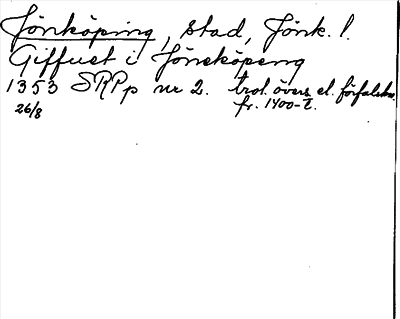 Jönköping, stad, Jönk. l.
Giffuet i Jöneköpeng
1353 SRPp nr 2. trol. övers. el. förfalskn.
26/8 fr. 1400-t.